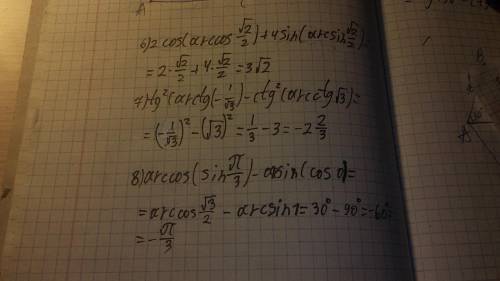 A
6) 2 cos(arccos √2/2) + 4 sin(arcsin √2/2)
= 2·√2/2 + 4·√2/2 = 3√2
7) tg²(arctg(-1/√3) - ctg²(arcctg √3) =
= (-1/√3)² - (√3)² = 1/3 - 3 = -2 2/3
8) arccos(sin π/3) - arcsin(cos 0) =
= arccos √3/2 - arcsin 1 = 30° - 90° = -60° =
= -π/3